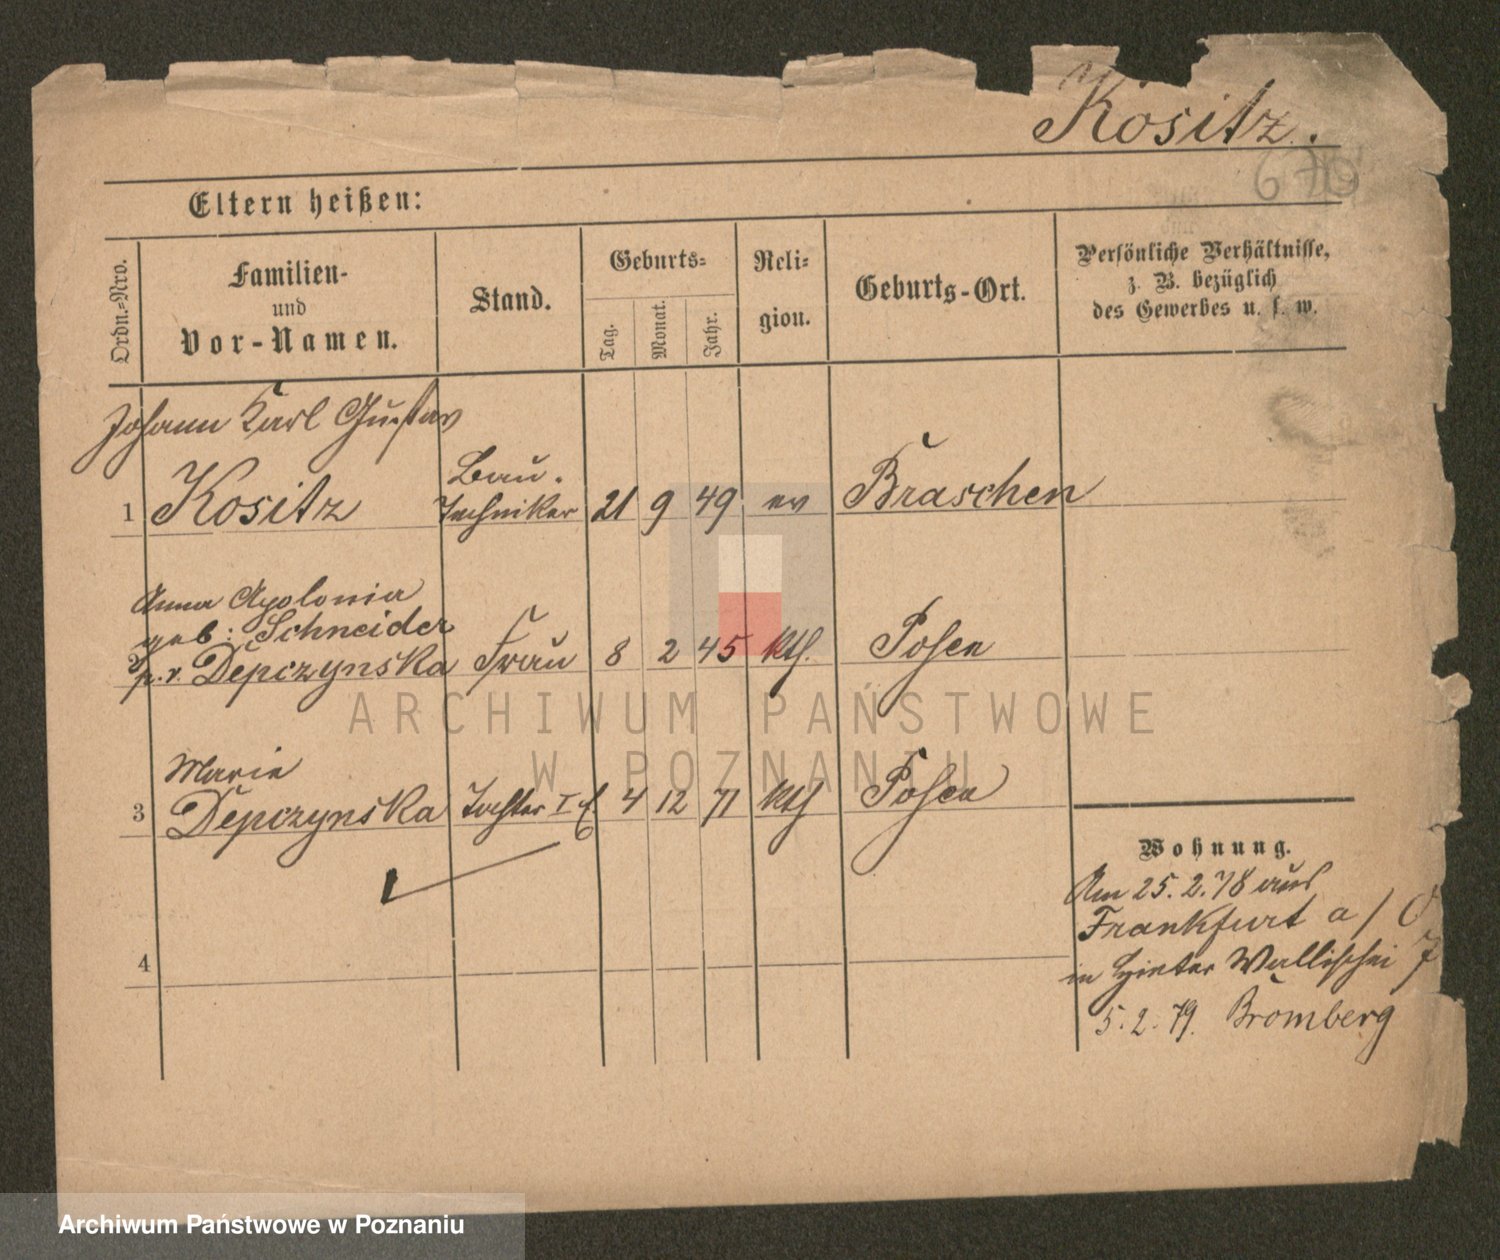 Kositz.
Eltern heißen:
Ordn.-Nro.
Familien-
und
Vor-Namen.
Stand.
Geburts-
Tag.
Monat.
Jahr.
Reli-
gion.
Geburts-Ort.
Persönliche Verhältnisse,
z. B. bezüglich
des Gewerbes u. s. w.
Johann Karl Gustav
1 Kositz Bau-Techniker 21 9 49 ev Braschen
Anna Apolonia
geb: Schneider
2 p. v. Depczynska Frau 8 2 45 kth. Posen
Marie
3 Depczynska Tochter I 4 12 71 kth Posen
4
Wohnung.
Am 25.2.78 aus
Frankfurt a/O
in Hinter Wallischei 7
5.2.79. Bromberg
ARCHIWUM PAŃSTWOWE
W POZNANIU
Archiwum Państwowe w Poznaniu